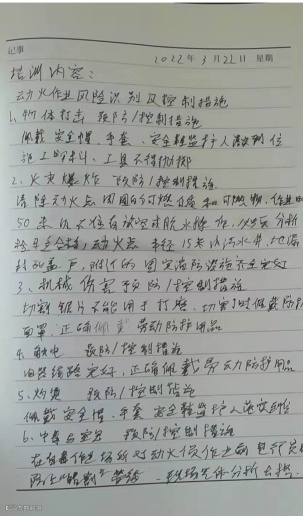 记事
2022年3月22日 星期
培训内容:
动火作业风险识别及控制措施
1、物体打击 预防/控制措施
佩戴安全帽、手套、安全鞋监护人落实到位
施工时料、工具不得抛掷
2、火灾爆炸 预防/控制措施
清除动火点周围的可燃介质和可燃物,作业时
50米内不得有放空或脱水操作,
动火点 半径15米内污水井、地漏
附近的固定消防设施齐全完好
3、机械伤害 预防/控制措施
切割锯片不能用于打磨,切割时佩戴防护
面罩,正确佩戴劳动防护用品
4、触电 预防/控制措施
电器线路完好,正确佩戴劳动防护用品
5、灼烫 预防/控制措施
佩戴安全帽、手套安全鞋监护人落实到位
6、中毒与窒息 预防/控制措施
在有毒作业场所对动火设作业前
现场气体分析合格.